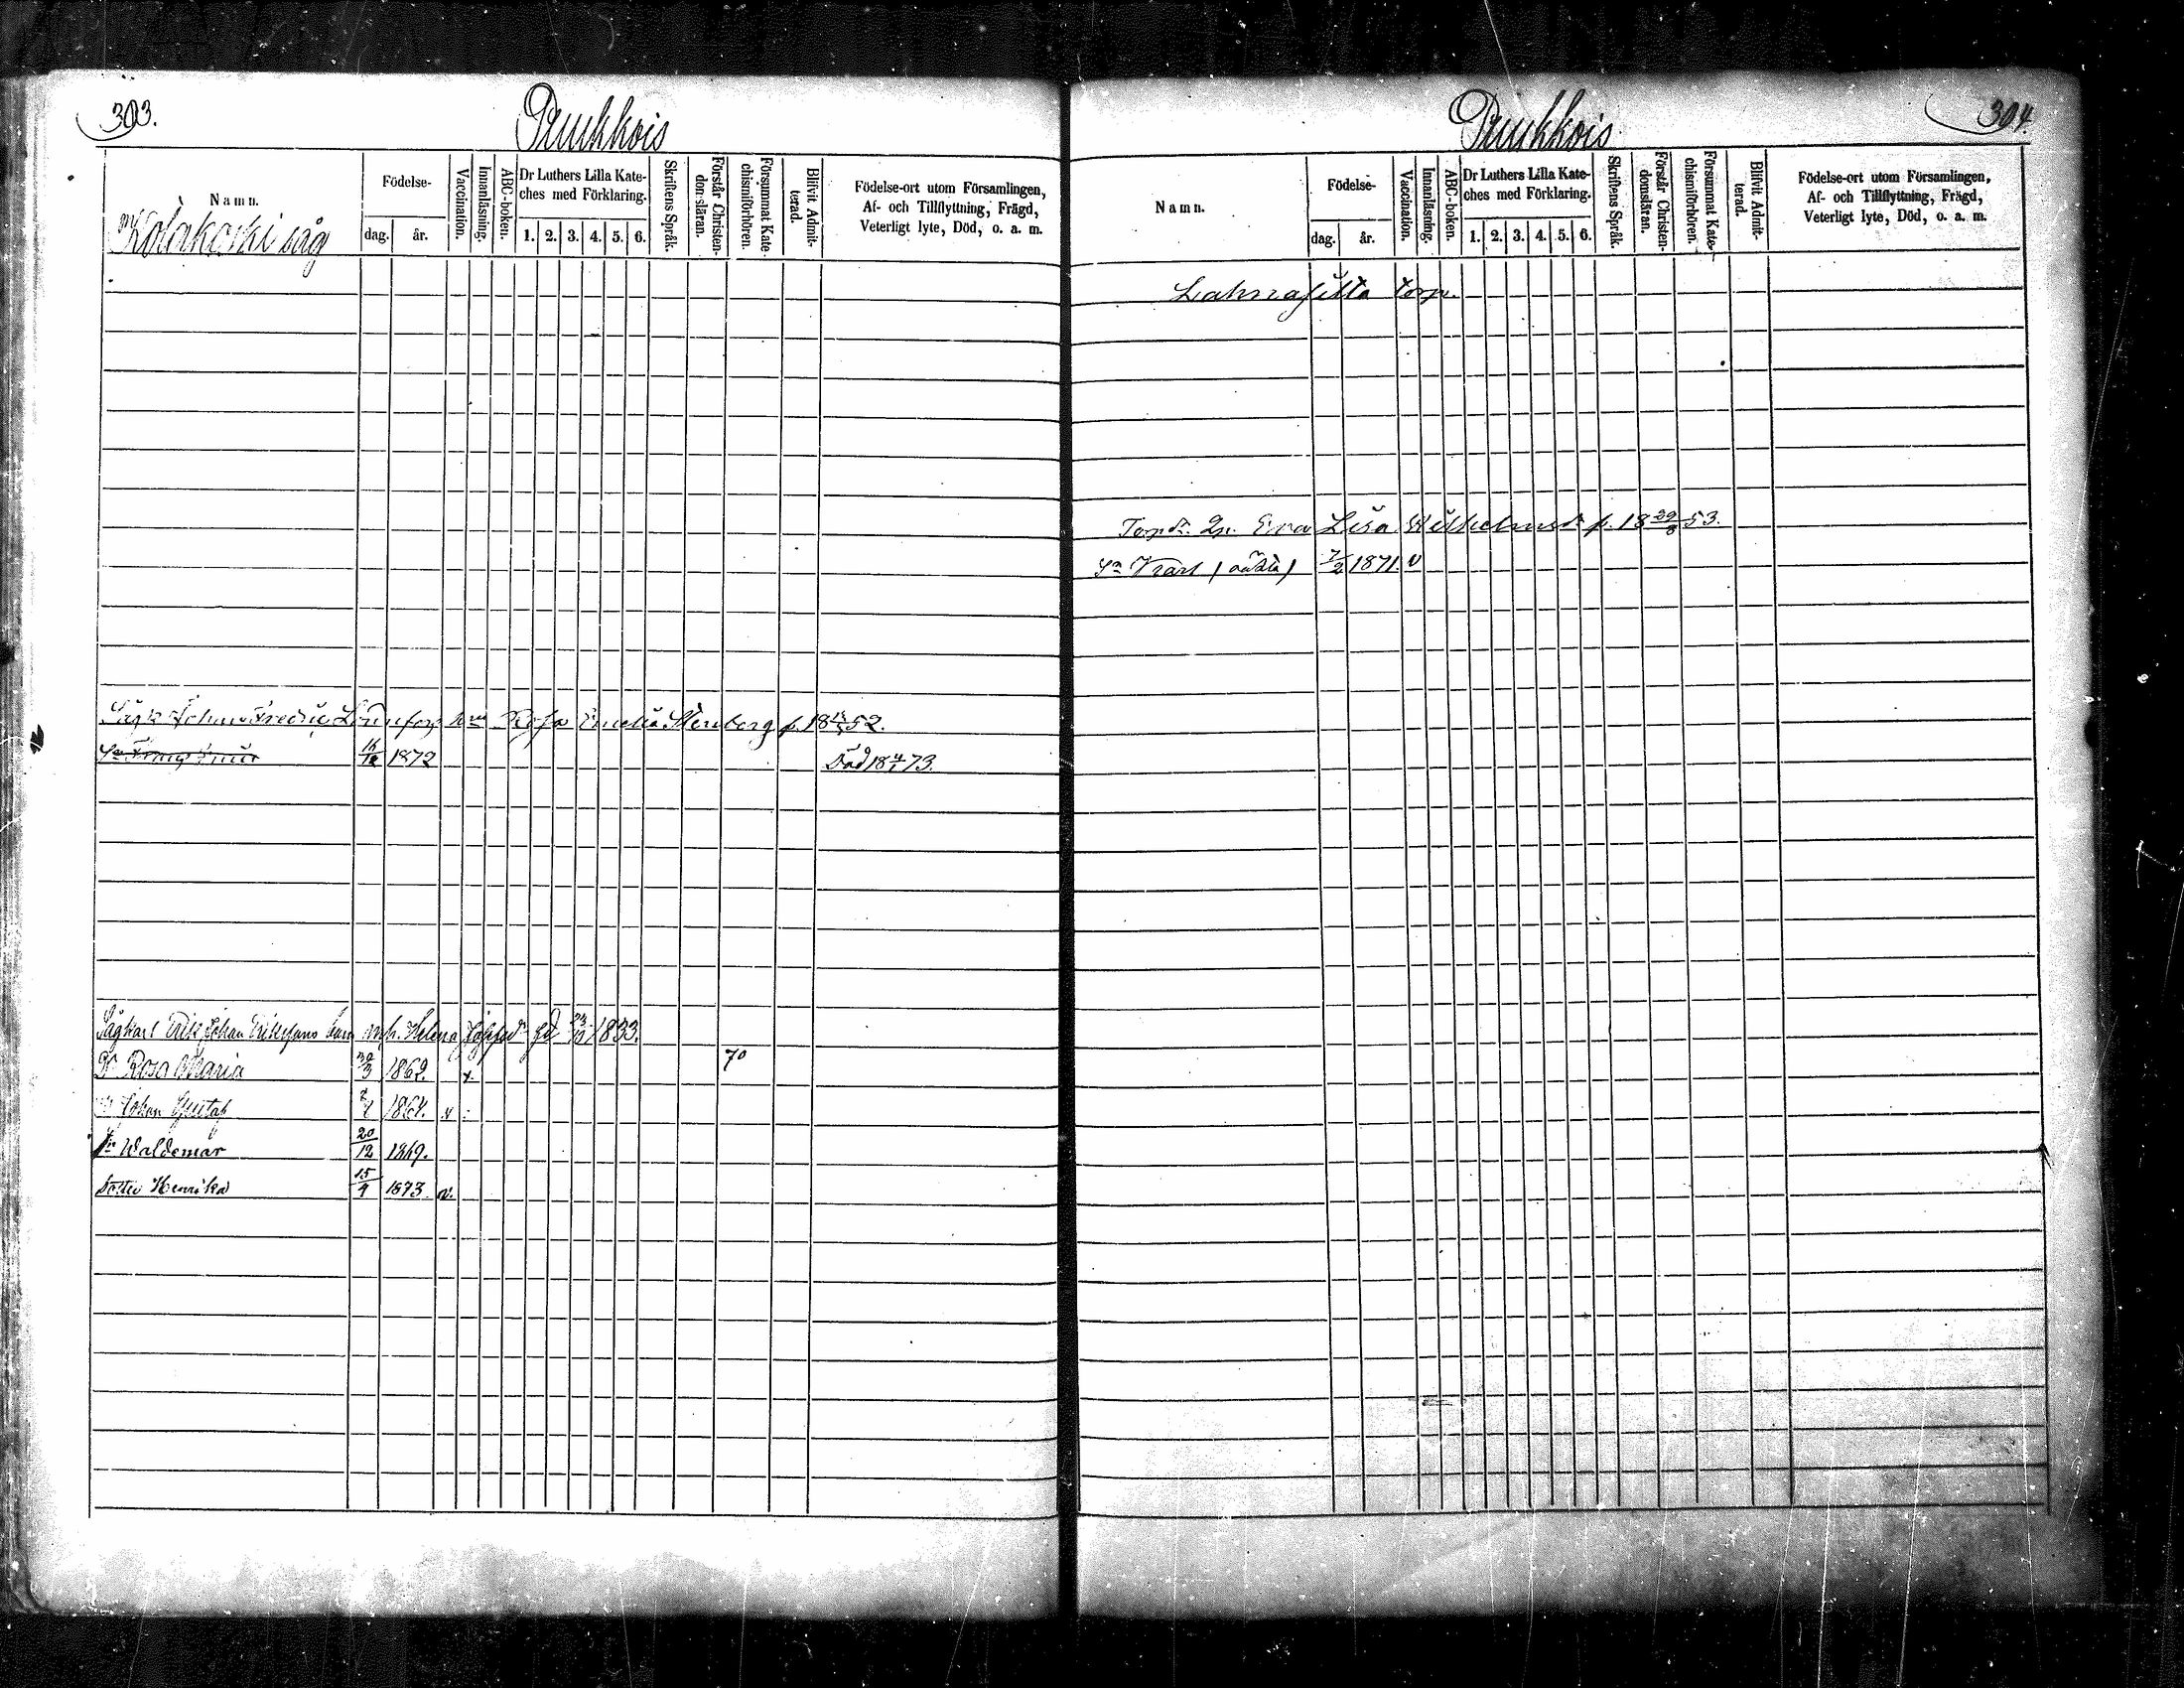 303.
Puukkois
Namn.
Födelse-
dag.
år.
Vaccination.
Innanläsning.
ABC-boken.
Dr Luthers Lilla Kate-
ches med Förklaring.
1. 2. 3. 4. 5. 6.
Skriftens Språk.
Förstår Christen-
domsläran.
Försummat Kate-
chismiförhören.
Blifvit Admit-
terad.
Födelse-ort utom Församlingen,
Af- och Tillflyttning, Frägd,
Veterligt lyte, Död, o. a. m.
Koiskoski såg
Johan Fredric Rosa Emelia Stenborg f. 52.
16/12 1872 Död 18 4/1 73.
Erik Johan barn m. h. Helena 1833.
Dr Rosa Maria 30/3 1862. x. 70
Johan Gustaf 1864.
Sn Waldemar 20/12 1869.
Dotter Henrika 15/9 1873 v.
304.
Puukkois
Namn.
Födelse-
dag.
år.
Vaccination.
Innanläsning.
ABC-boken.
Dr Luthers Lilla Kate-
ches med Förklaring.
1. 2. 3. 4. 5. 6.
Skriftens Språk.
Förstår Christen-
domsläran.
Försummat Kate-
chismiförhören.
Blifvit Admit-
terad.
Födelse-ort utom Församlingen,
Af- och Tillflyttning, Frägd,
Veterligt lyte, Död, o. a. m.
Lahnasilta torp.
Eva Lisa Wilhelmsdr f. 18 29/8 53.
Sn Karl (oäkta) 7/2 1871. v